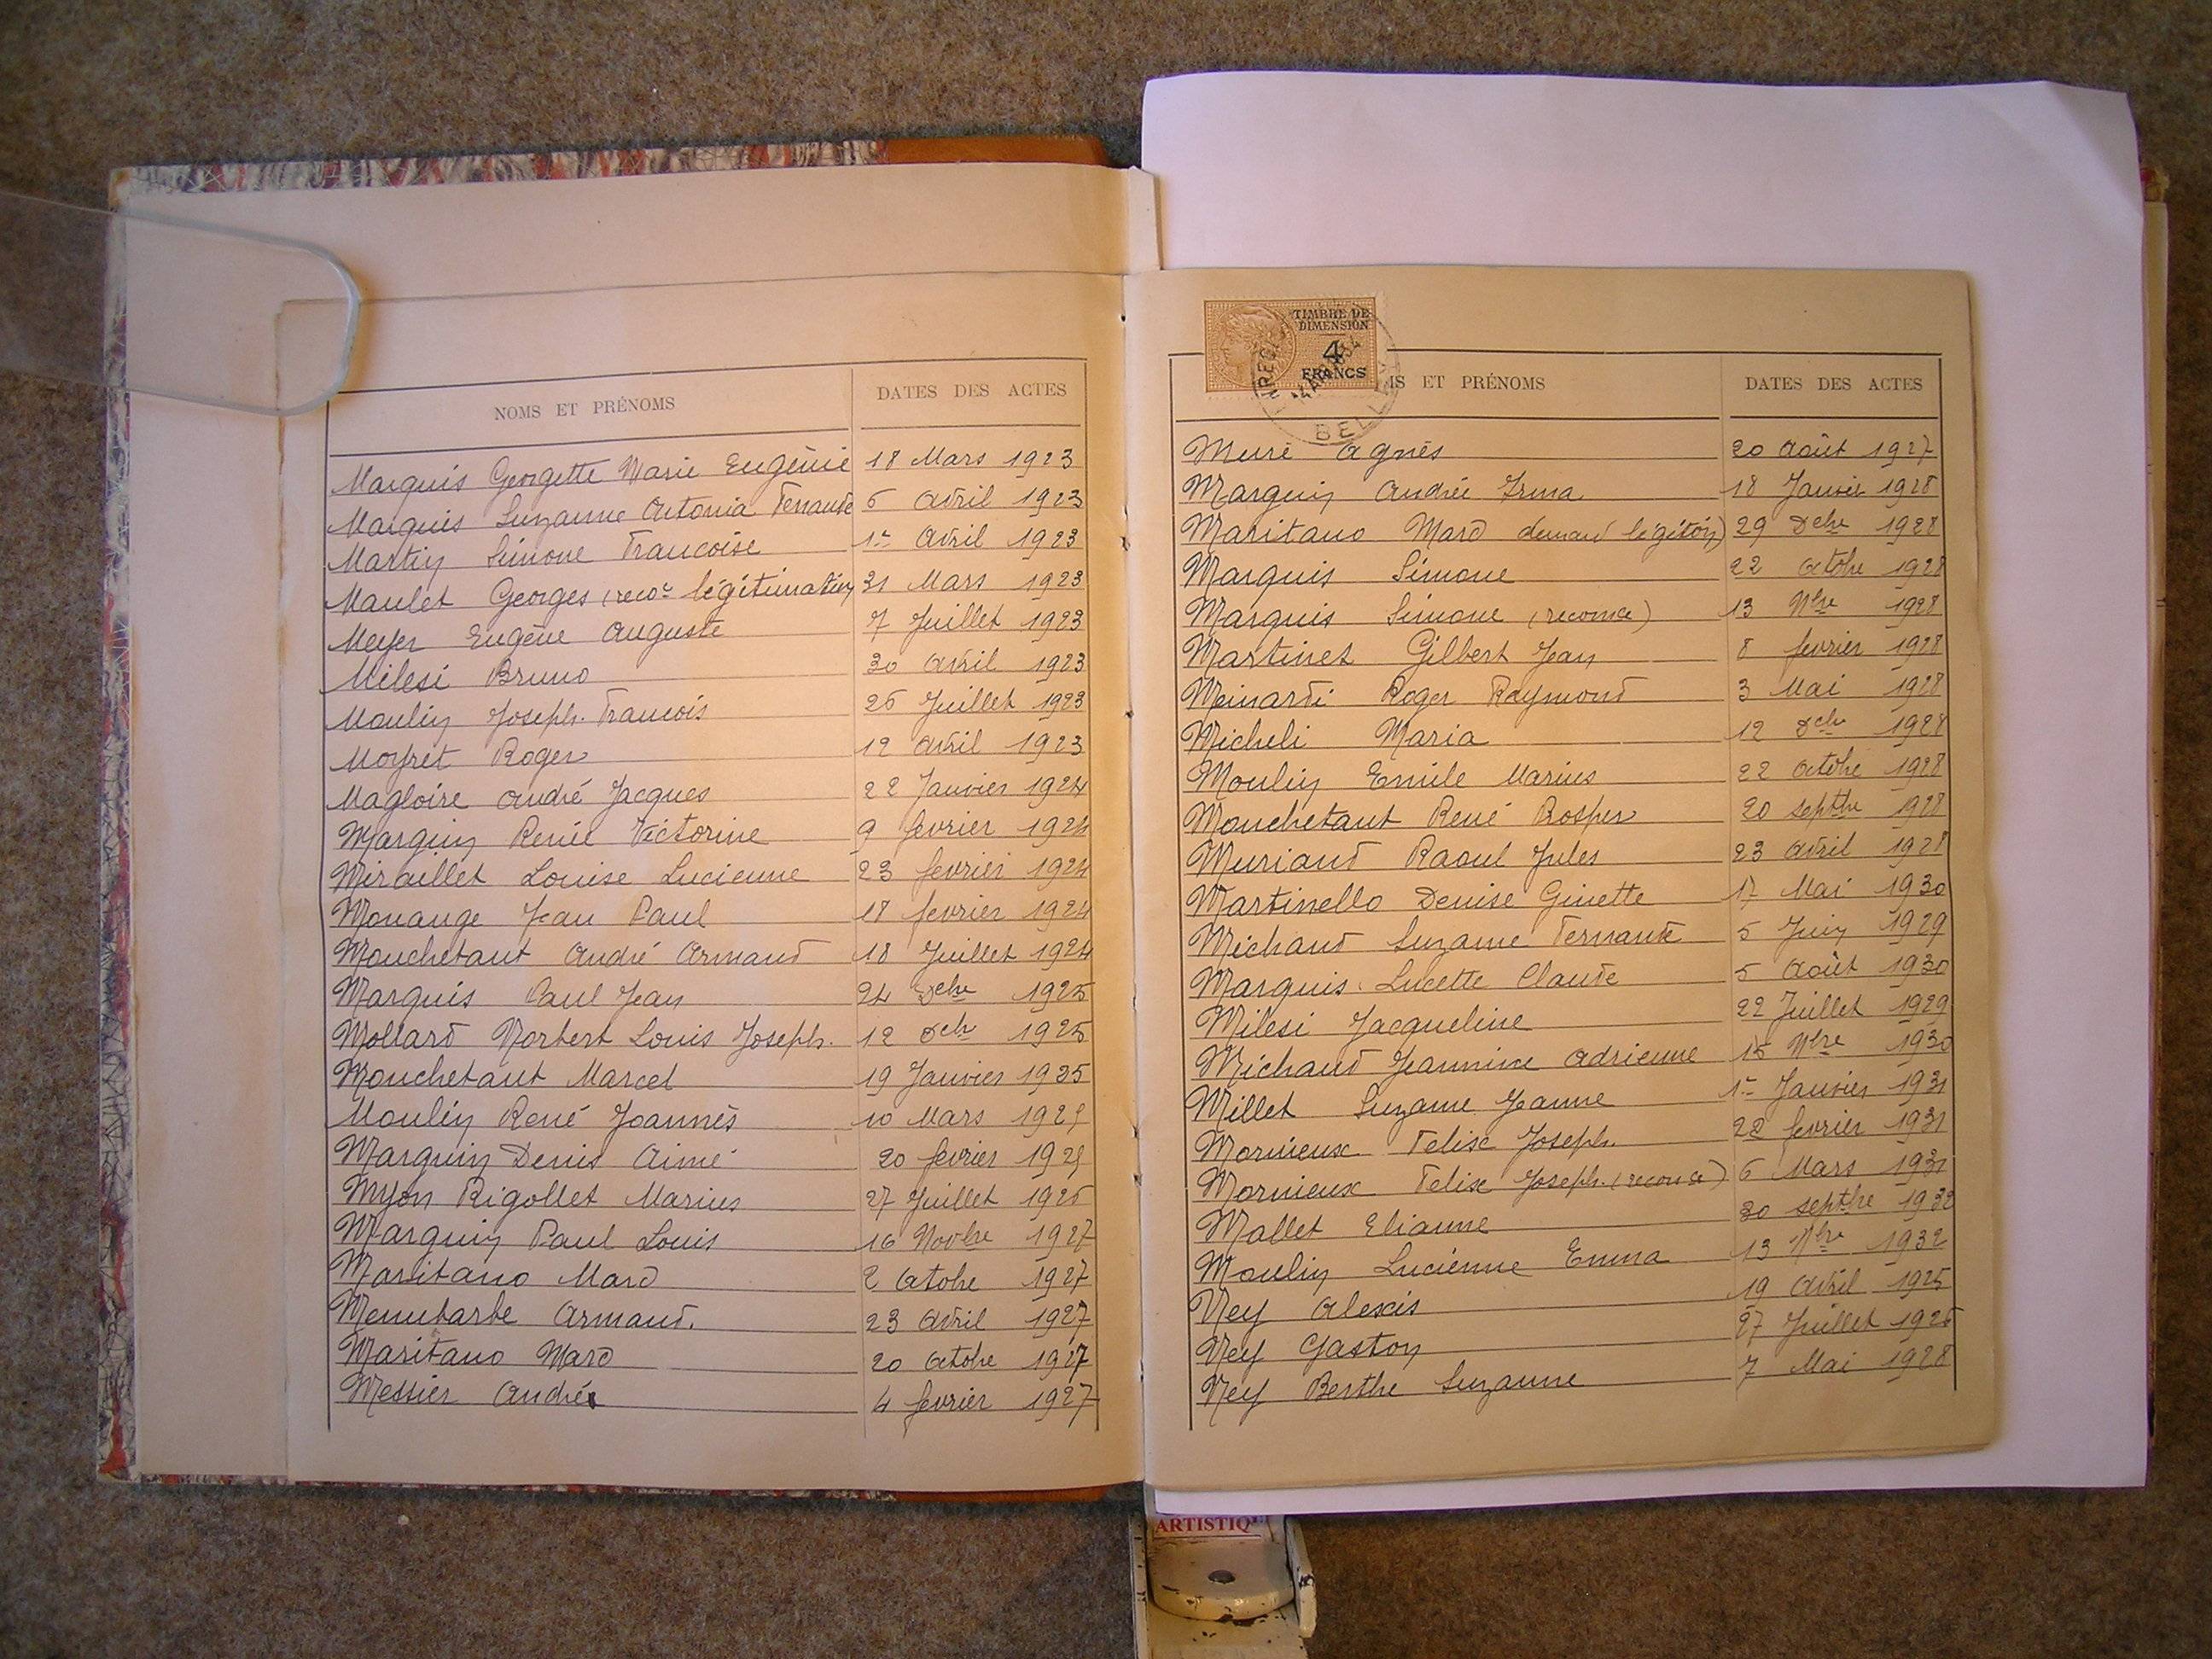 NOMS ET PRÉNOMS DATES DES ACTES
Marquis Georgette Marie Eugènie 18 Mars 1923
Marquis Suzanne Antonia Fernande 5 Avril 1923
Martin Simone Francoise 1er Avril 1923
Maulet Georges (reco légitimation 31 Mars 1923
Meyer Eugène Auguste 7 Juillet 1923
Milesi Bruno 30 Avril 1923
Moulin Joseph. Francois 25 Juillet 1923
Moyret Roger 12 Avril 1923
Magloire André Jacques 22 Janvier 1924
Marquin Renée Victorine 9 fevrier 1924
Miraillet Louise Lucienne 23 fevrier 1924
Monange Jean Paul 18 fevrier 1924
Mouchetant André Armand 18 Juillet 1924
Marquis Paul Jean 24 Dcbre 1925
Mollard Norbert Louis Joseph. 12 Dcbre 1925
Mouchetant Marcel 19 Janvier 1925
Moulin René Joannès 10 Mars 1925
Marquin Denis Aimé 20 fevrier 1925
Myon Rigollet Marius 27 Juillet 1926
Marquin Paul Louis 16 Novbre 1927
Maritano Marc 2 Octobre 1927
Menubarbe Armand. 23 Avril 1927
Maritano Marc 20 Octobre 1927
Messier André 4 fevrier 1927
TIMBRE DE
DIMENSION
4
FRANCS
BEL
MS ET PRÉNOMS DATES DES ACTES
Muré Agnès 20 Août 1927
Marquin Andrée Irma 18 Janvier 1928
Maritano Marc légiton) 29 Dcbre 1928
Marquis Simone 22 Octobre 1928
Marquis Simone (reconnce) 13 Nbre 1928
Martinet Gilbert Jean 8 fevrier 1928
Meinardi Roger Raymond 3 Mai 1928
Micheli Maria 12 Dcbre 1928
Moulin Emile Marius 22 Octobre 1928
Mouchetant René Prosper 20 septbre 1928
Muriand Raoul Jules 23 Avril 1928
Martinello Denise Ginette 17 Mai 1930
Michaud Suzanne Fernande 5 Juin 1929
Marquis Lucette Claude 5 Août 1930
Milesi Jacqueline 22 Juillet 1929
Michaud Jeannine Adrienne 15 Nbre 1930
Millet Suzanne Jeanne 1er Janvier 1931
Mornieux Felix Joseph. 22 fevrier 1931
Mornieux Felix Joseph. (reconnce) 6 Mars 1931
Mallet Elianne 30 septbre 1932
Moulin Lucienne Emma 13 Nbre 1932
Ney Alexis 19 Avril 1925
Ney Gaston 27 Juillet 1926
Ney Berthe Suzanne 7 Mai 1928
ARTISTIQUE